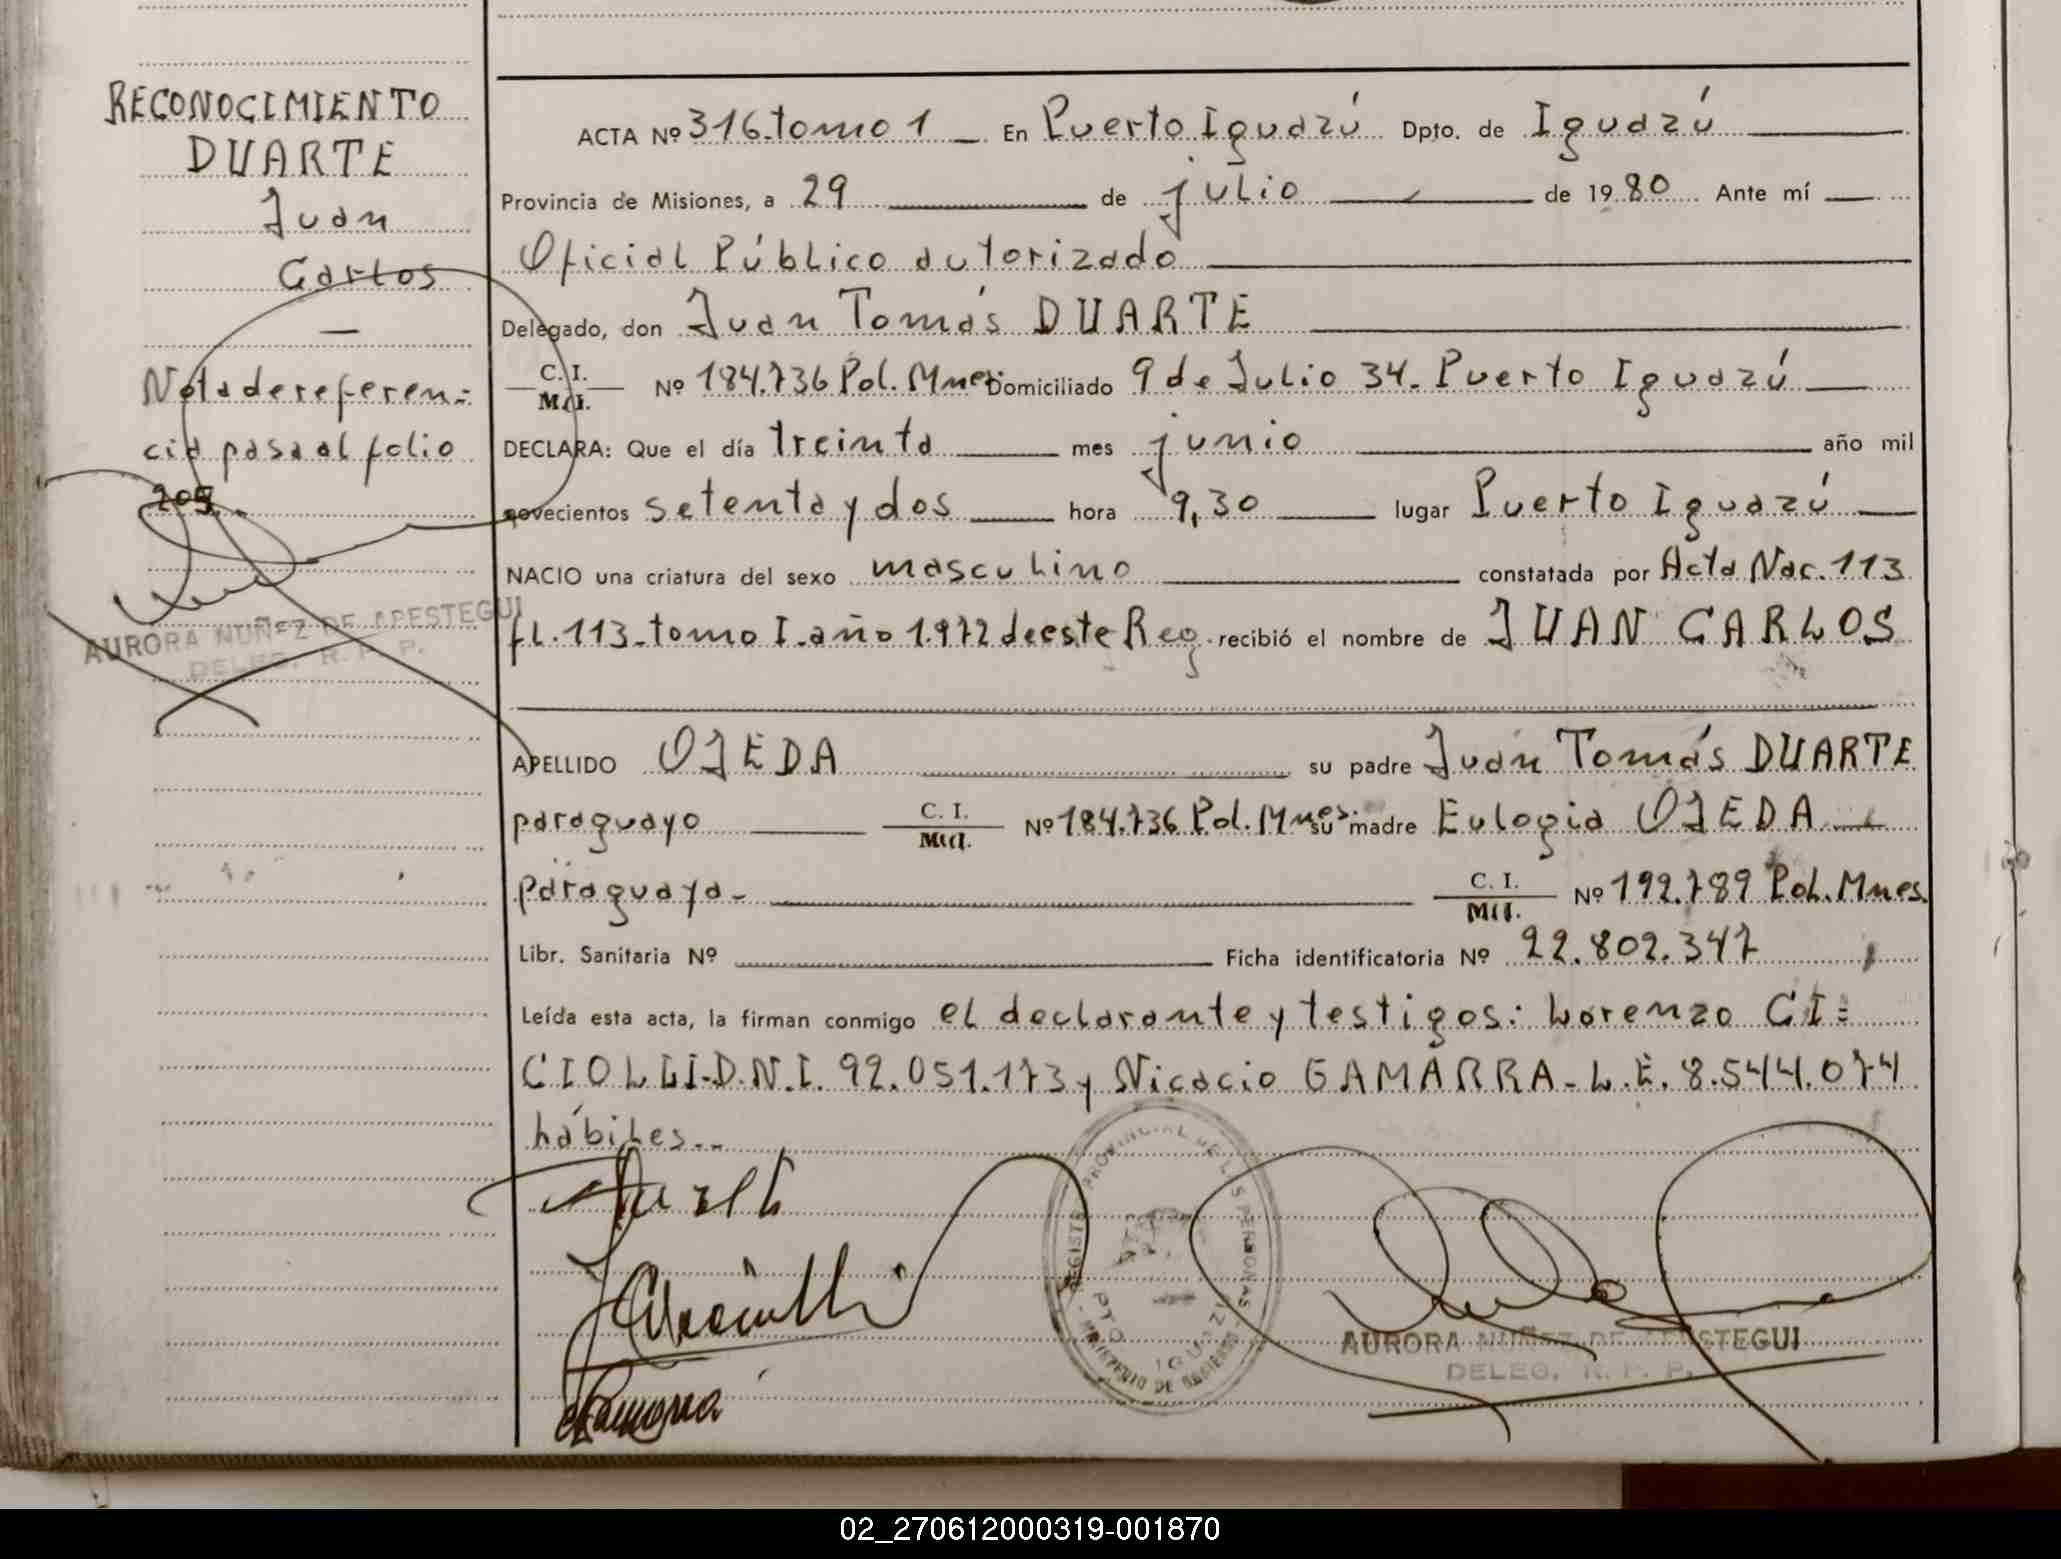 RECONOCIMIENTO
DUARTE
Juan
Carlos
—
Nota de referen=
cia pasa al folio
209.
AURORA NUÑEZ DE APESTEGUI
DELEG. R. P. P.
ACTA Nº 316-tomo 1 En Puerto Iguazú Dpto. de Iguazú
Provincia de Misiones, a 29 de julio de 1980 Ante mí
Oficial Público autorizado
Delegado, don Juan Tomás DUARTE
C. I. Nº 184.736 Pol. Mnes. Domiciliado 9 de Julio 34. Puerto Iguazú
M.I.
DECLARA: Que el día treinta mes junio año mil
novecientos setenta y dos hora 9,30 lugar Puerto Iguazú
NACIO una criatura del sexo masculino constatada por Acta Nac. 113
fl. 113-tomo I-año 1.972 de este Reg. recibió el nombre de JUAN CARLOS
APELLIDO OJEDA su padre Juan Tomás DUARTE
paraguayo C. I. Nº 184.736 Pol. Mnes. su madre Eulogia OJEDA
paraguaya- C. I. Nº 192.789 Pol. Mnes.
Libr. Sanitaria Nº Ficha identificatoria Nº 22.802.347
Leída esta acta, la firman conmigo el declarante y testigos: Lorenzo CI=
CIOLLI-D.N.I. 92.051.173 y Nicacio GAMARRA-L.E. 8.544.074
hábiles--
REGISTRO PROVINCIAL DE LAS PERSONAS
PTO. IGUAZU
MINISTERIO DE GOBIERNO
AURORA NUÑEZ DE APESTEGUI
DELEG. R. P. P.
02_270612000319-001870